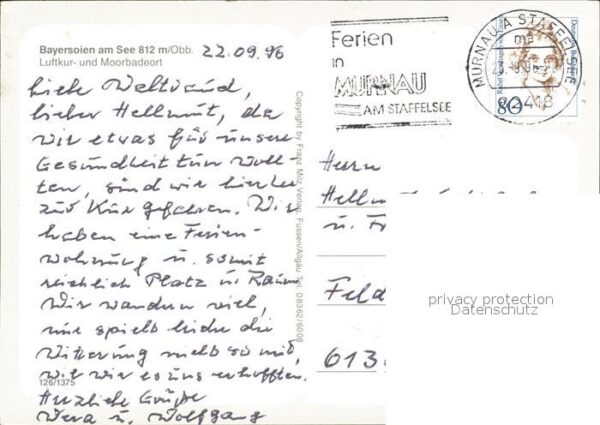 Bayersoien am See 812 m/Obb.
Luftkur- und Moorbadeort
22.09.96
Liebe Waltraud,
lieber Hellmut, da
wir etwas für unsere
Gesundheit tun woll-
ten, sind wir hierher
zur Kur gefahren. Wir
haben eine Ferien-
wohnung u. somit
reichlich Platz u. Raum
Wir wandern viel,
nur spielt leider die
Witterung nicht so mit,
wie wir es uns erhofften.
Herzliche Grüße
Vera u. Wolfgang
126/1375
Copyright by Franz Milz Verlag, Füssen/Allgäu Tel. 08362/6008
Ferien
in
MURNAU
AM STAFFELSEE
MURNAU A STAFFELSEE
ma
82418
80
Herrn
Hellmut
u. Fr
Feld
613
privacy protection
Datenschutz